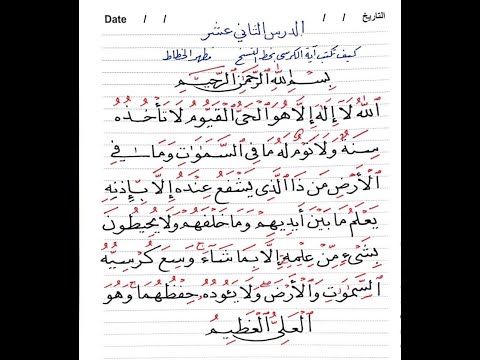 Date / / / / التاريخ
الدرس الثاني عشر
كيف تكتب آية الكرسي بخط النسخ مظهر الخطاط
بِسْمِ اللهِ الرَّحْمَنِ الرَّحِيمِ
اللهُ لَا إِلَهَ إِلَّا هُوَ الْحَيُّ الْقَيُّومُ لَا تَأْخُذُهُ
سِنَةٌ وَلَا نَوْمٌ لَهُ مَا فِي السَّمَوَاتِ وَمَا فِي
الْأَرْضِ مَن ذَا الَّذِي يَشْفَعُ عِنْدَهُ إِلَّا بِإِذْنِهِ
يَعْلَمُ مَا بَيْنَ أَيْدِيهِمْ وَمَا خَلْفَهُمْ وَلَا يُحِيطُونَ
بِشَيْءٍ مِّنْ عِلْمِهِ إِلَّا بِمَا شَاءَ وَسِعَ كُرْسِيُّهُ
السَّمَوَاتِ وَالْأَرْضَ وَلَا يَئُودُهُ حِفْظُهُمَا وَهُوَ
الْعَلِيُّ الْعَظِيمُ